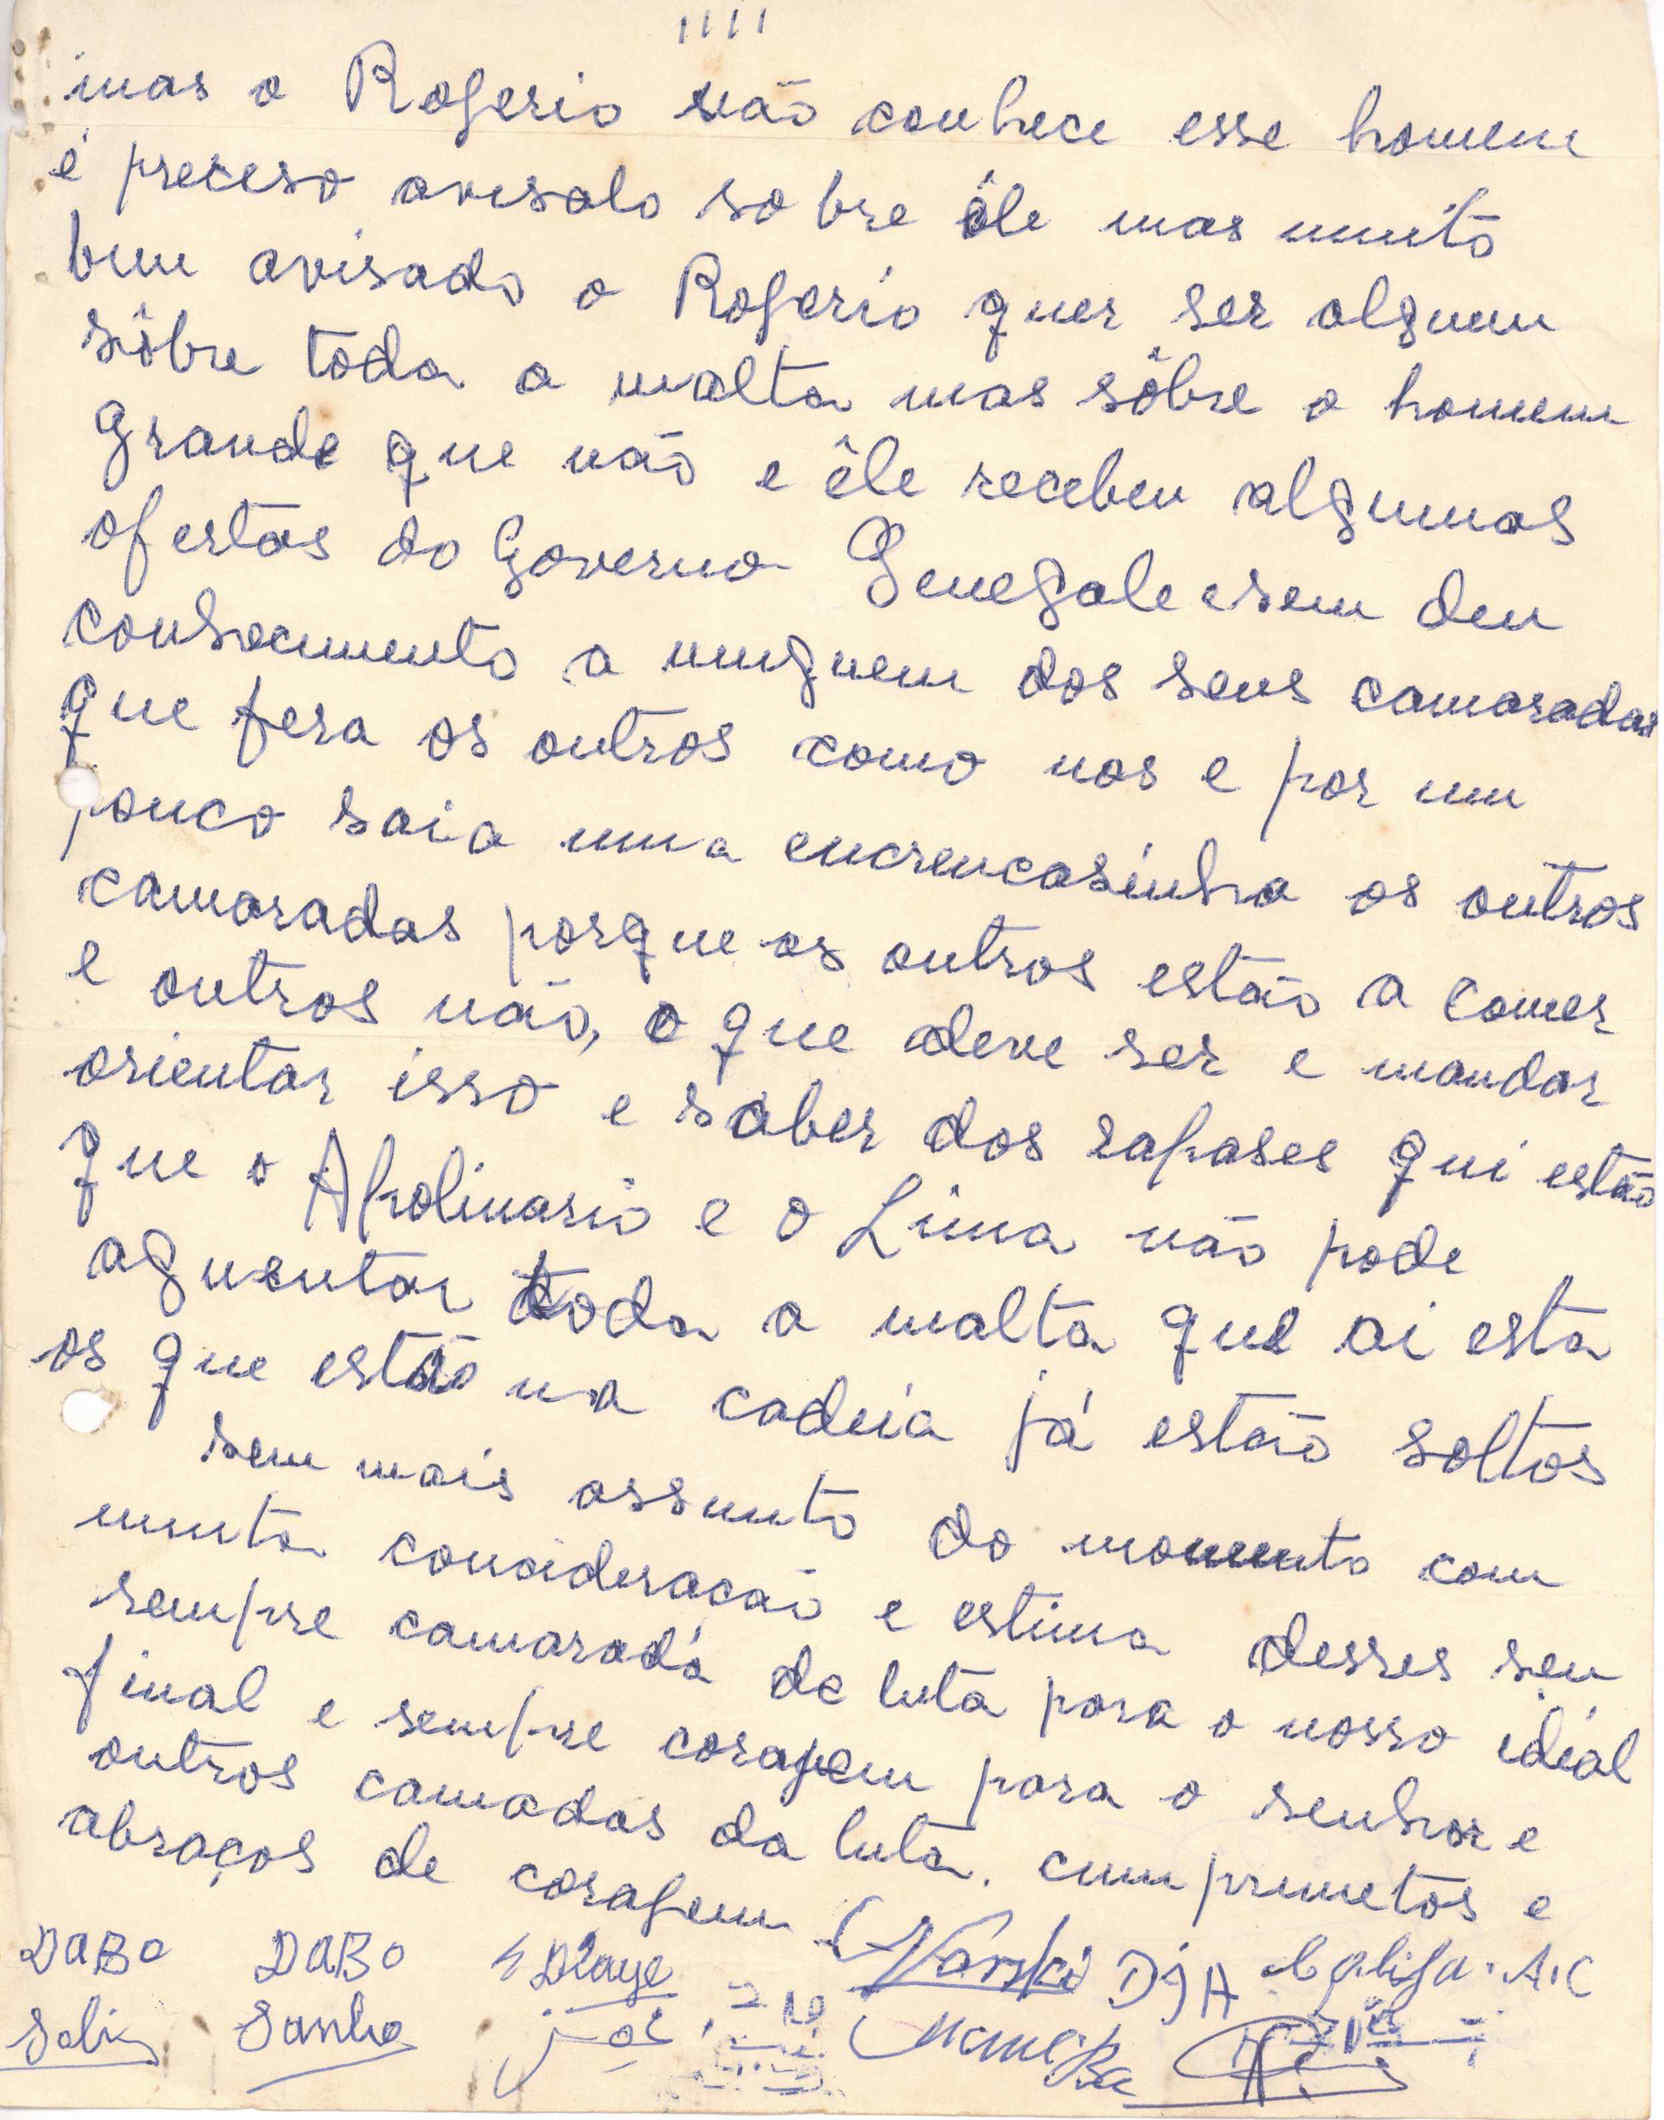 1111
mas o Rogerio não conhece esse homem
é preceso avisalo sobre êle mas muito
bem avisado o Rogerio quer ser alguem
sôbre toda a malta mas sôbre o homem
grande que não e êle recebeu algumas
ofertas do Governo Senegale esem deu
conhecimento a ninguem dos seus camaradas
que fera os outros como nos e por um
pouco saia uma encrencasinha os outros
camaradas porque os outros estão a comer
e outros não, o que deve ser e mandar
orientar isso e saber dos rapases qui estão
que o Apolinario e o Lima não pode
aguentar toda a malta que ai esta
os que estão na cadeia já estão soltos
sem mais assunto do momento com
muita consideração e estima desses seu
sempre camaradá de luta para o nosso idiál
final e sempre coragem para o senhor e
outros camadas da luta. cumprimetos e
abraços de coragem
DABO DABO Diaye DJA A.C
Sanha